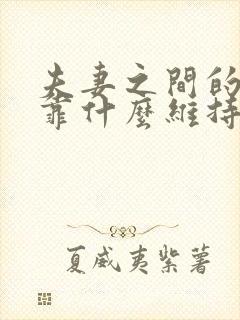 夫妻之間的
靠什麼維持
夏威夷紫薯